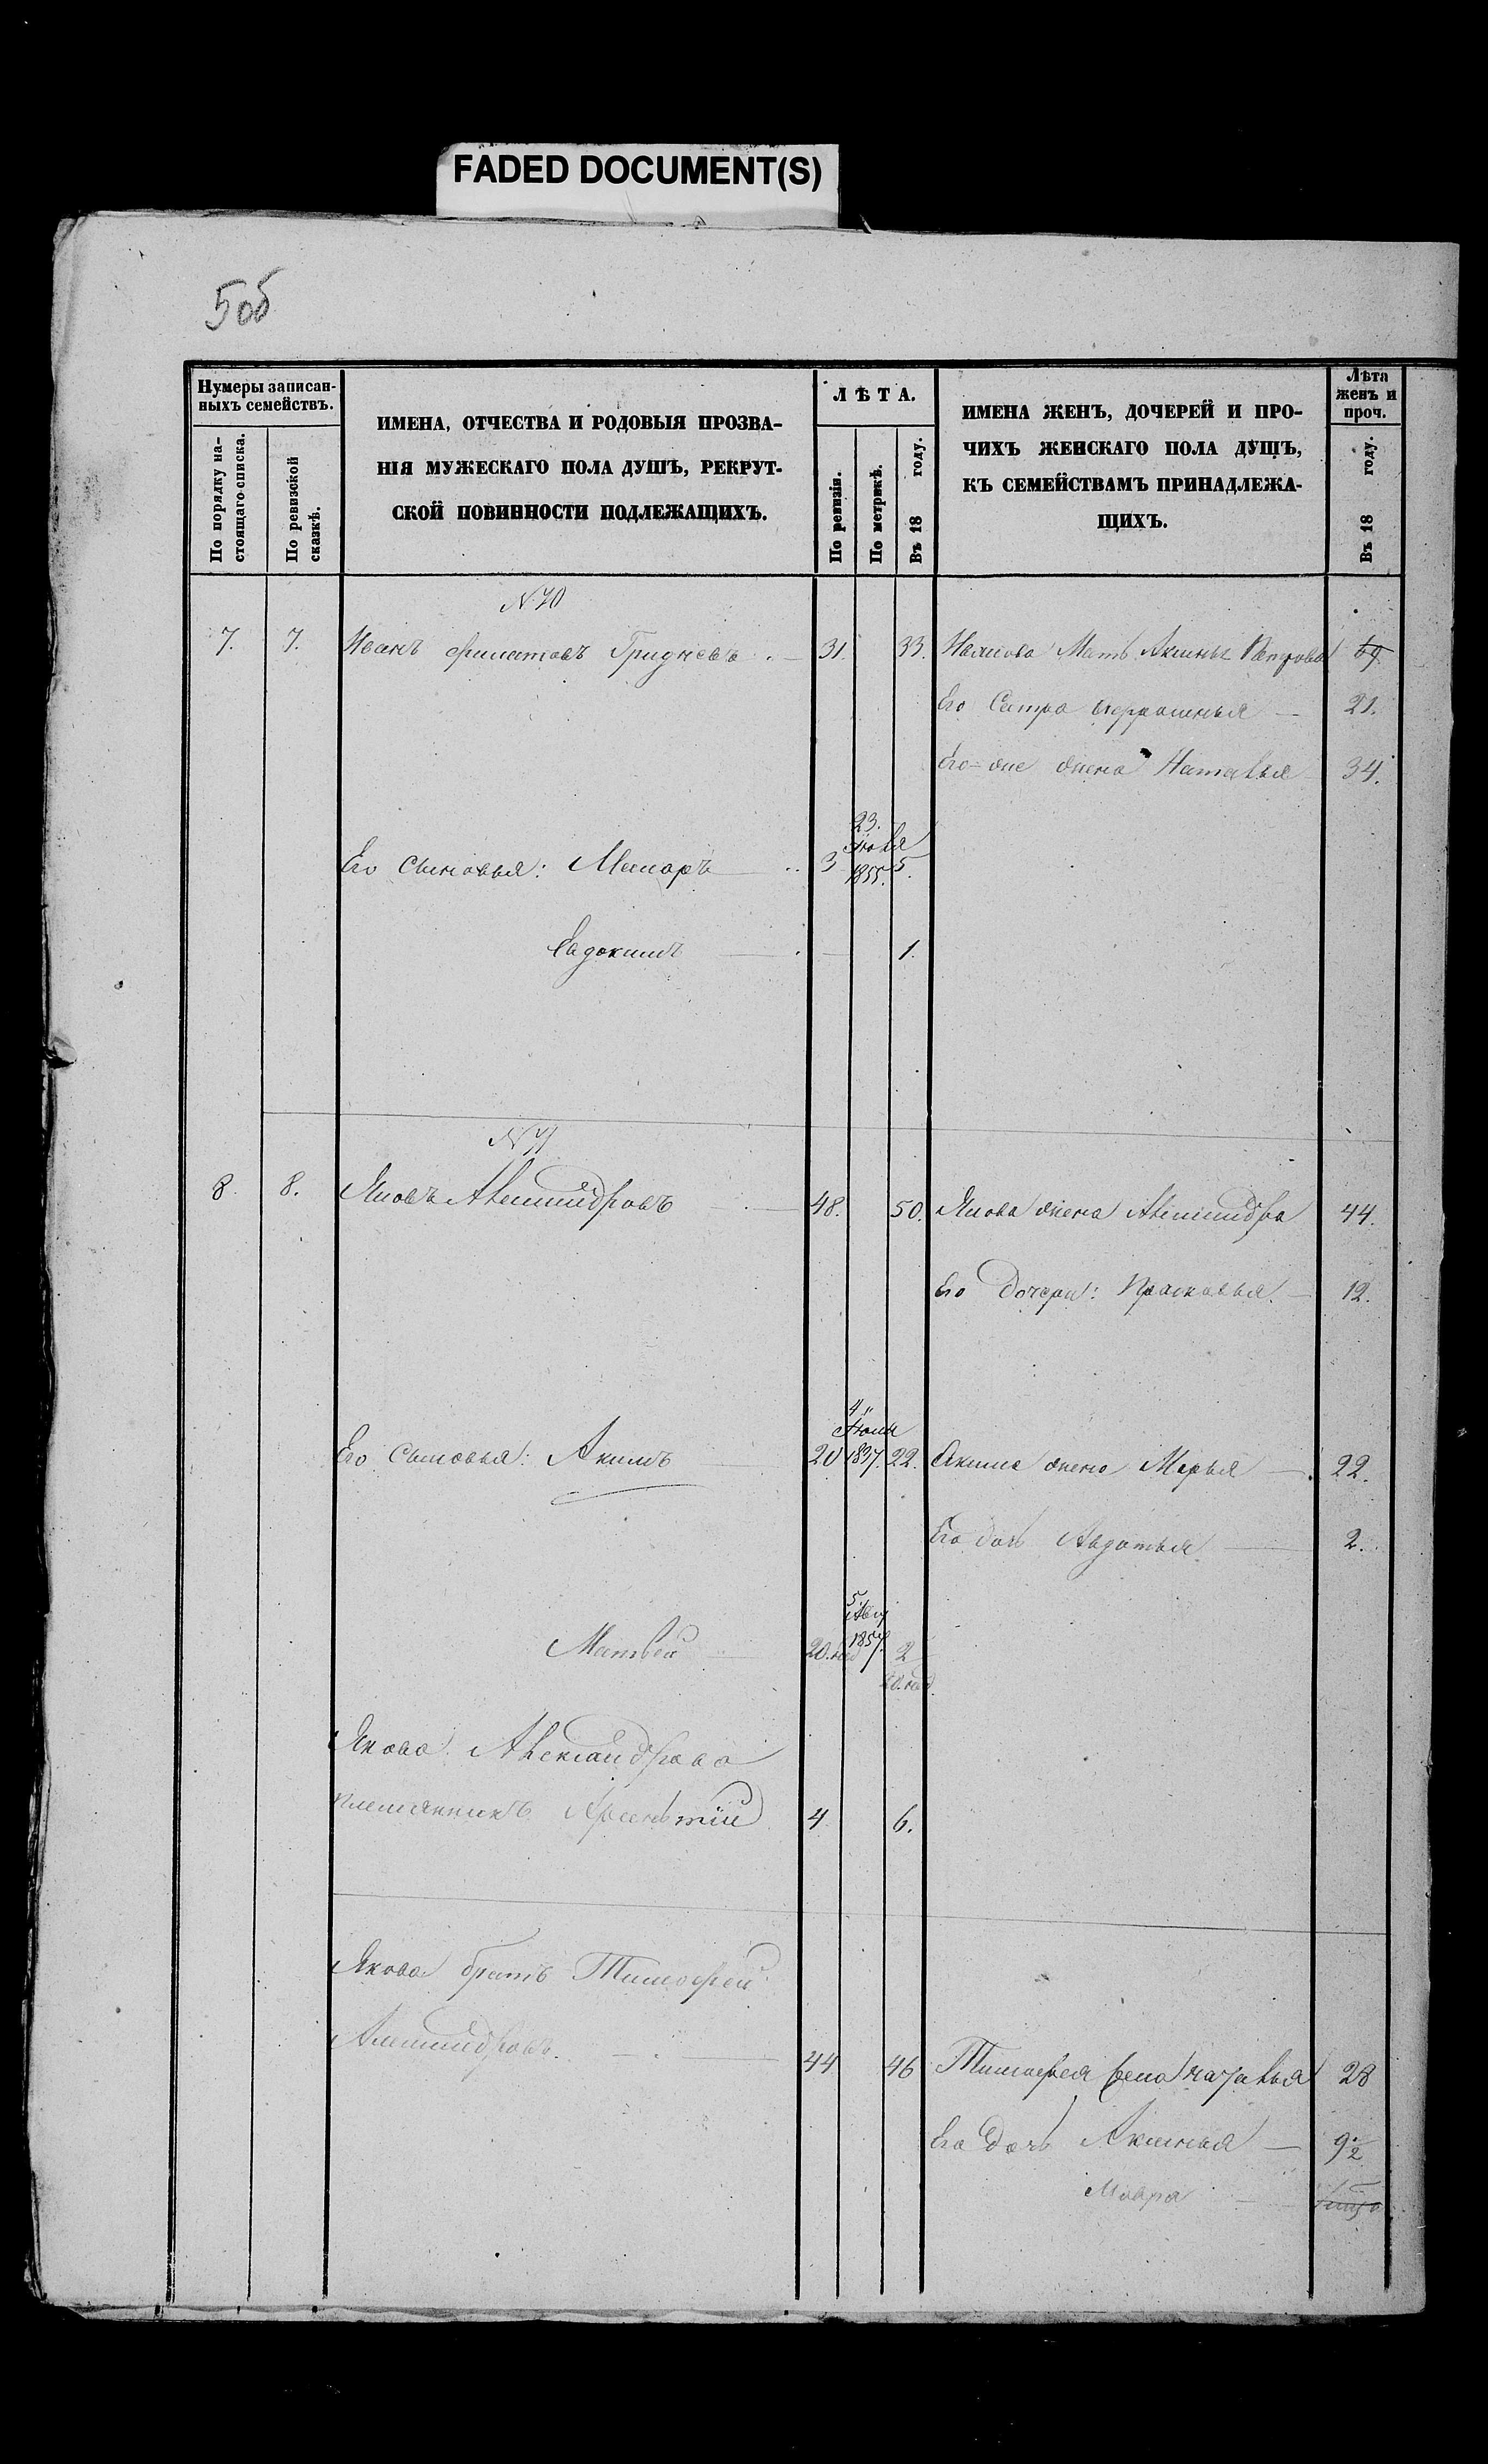 FADED DOCUMENT(S)
5об
Нумеры записан-
ныхъ семействъ.
По порядку на-
стоящаго списка.
По ревизской
сказкѣ.
ИМЕНА, ОТЧЕСТВА И РОДОВЫЯ ПРОЗВА-
НІЯ МУЖЕСКАГО ПОЛА ДУШЪ, РЕКРУТ-
СКОЙ ПОВИННОСТИ ПОДЛЕЖАЩИХЪ.
ЛѢТА.
По ревизіи.
По метрикѣ.
Въ 18 году.
ИМЕНА ЖЕНЪ, ДОЧЕРЕЙ И ПРО-
ЧИХЪ ЖЕНСКАГО ПОЛА ДУШЪ,
КЪ СЕМЕЙСТВАМЪ ПРИНАДЛЕЖА-
ЩИХЪ.
Лѣта
женъ и
проч.
Въ 18 году.
N 70
7. 7. Иванъ Филатовъ Гридневъ 31. 33. Иванова Мать Аксинья Петрова 69
Его Сестра 21.
Его-же жена Наталья 34.
23.
Іюля
Его Сыновья: Макаръ 3 1855. 5.
Евдокимъ — 1.
N 71
8. 8. Яковъ Александровъ 48. 50. Якова жена Александра 44.
Его Дочери: Прасковья 12.
4
Іюля
Его Сыновья: Акимъ 20 1837. 22. Акима жена Марья 22.
Его дочь Авдотья 2.
5.
Авгу
Матвей 20. нед 1857. 2
20. нед.
Якова Александрова
племянникъ 4 6.
Якова братъ Тимофей
Александровъ. 44 46 Тимофея жена Наталья 28
Его Дочь Аксинья 9½
Мавра